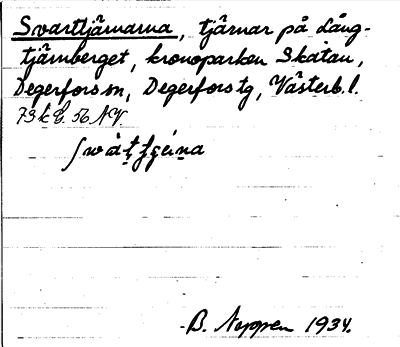 Svarttjärnarna, tjärnar på Lång-
tjärnberget, kronoparken Skatan,
Degerfors sn, Degerfors tg, Västerb. l.
73 k E. 56 NV.
B. Nyspen 1934.